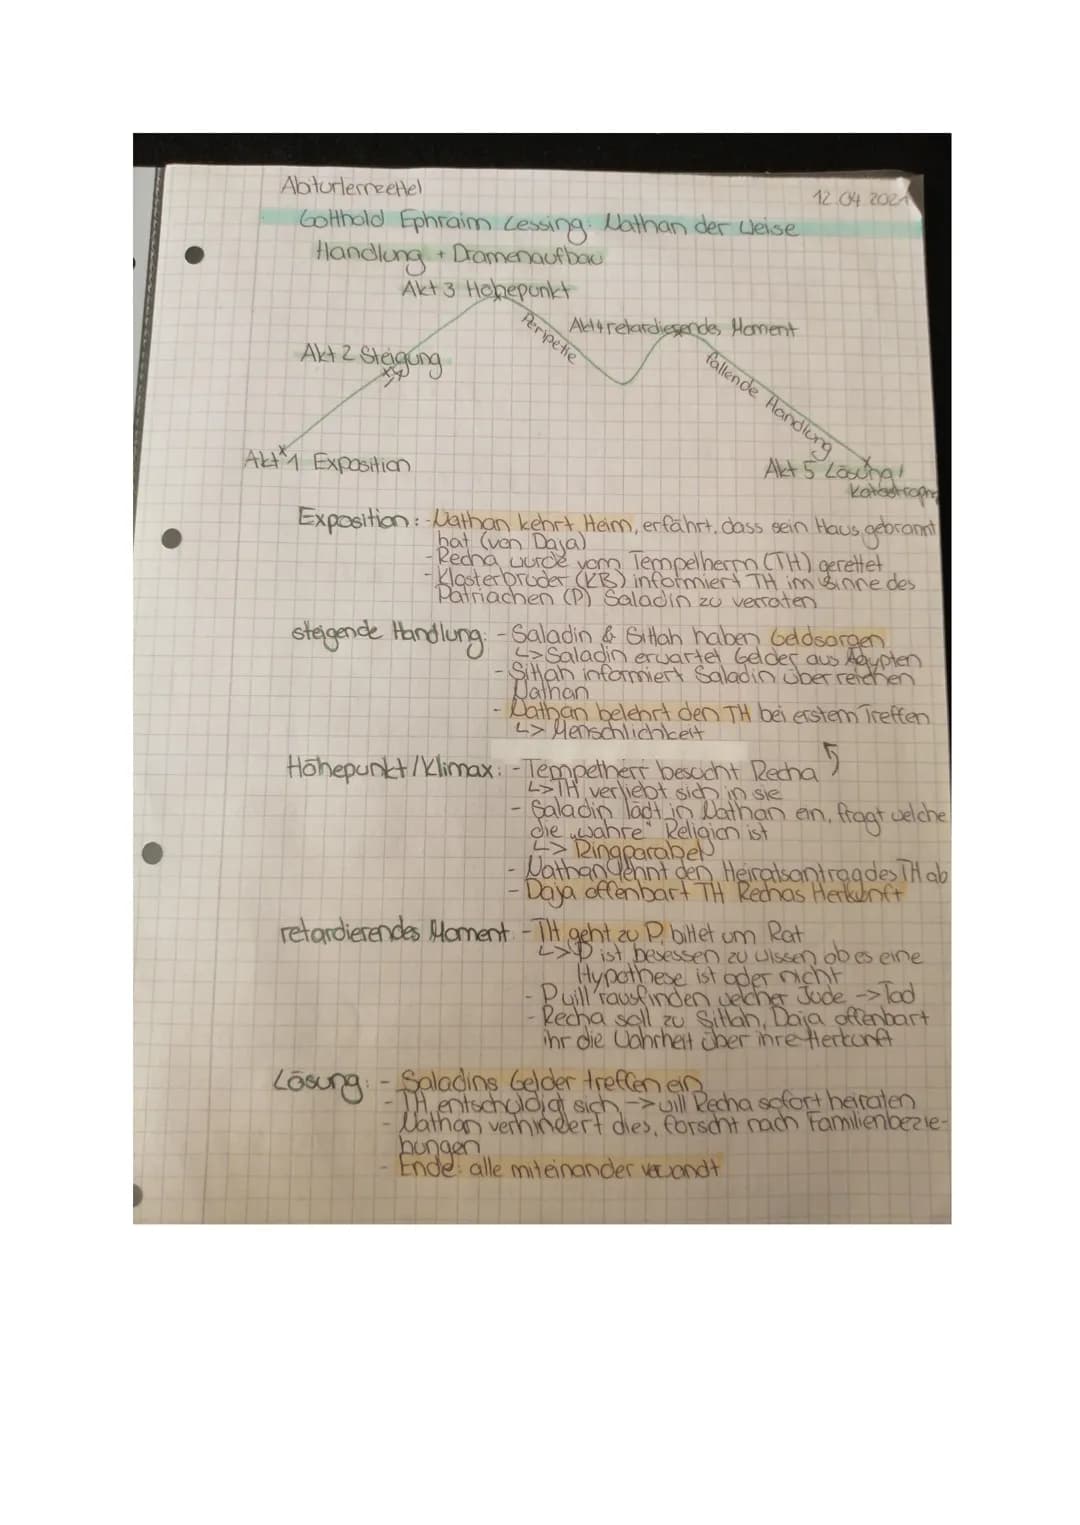 Abiturlernzettel
12.04.2021
Gotthold Ephraim Lessing: Nathan der Weise
Handlung + Dramenaufbau
Akt 3 Höhepunkt
Peripetie
Akt 4 retardierendes Moment
Akt 2 Steigung
fallende Handlung
Akt 1 Exposition
Akt 5 Lösung/
Katastrophe
Exposition: - Nathan kehrt Heim, erfährt, dass sein Haus gebrannt
hat (von Daja)
- Recha wurde vom Tempelherrn (TH) gerettet
- Klosterbruder (KB) informiert TH im Sinne des
Patriachen (P) Saladin zu verraten
steigende Handlung: - Saladin & Sittah haben Geldsorgen
↳ Saladin erwartet Gelder aus Ägypten
- Sittah informiert Saladin über reichen
Nathan
- Nathan belehrt den TH bei erstem Treffen
↳ Menschlichkeit
Höhepunkt/Klimax: - Tempelherr besucht Recha
↳ TH verliebt sich in sie
- Saladin lädt in Nathan ein, fragt welche
die „wahre" Religion ist
↳ Ringparabel
- Nathan lehnt den Heiratsantrag des TH ab
- Daja offenbart TH Rechas Herkunft
retardierendes Moment: - TH geht zu P, bittet um Rat
↳ P ist besessen zu wissen ob es eine
Hypothese ist oder nicht
- P will rausfinden welcher Jude -> Tod
- Recha soll zu Sittah, Daja offenbart
ihr die Wahrheit über ihre Herkunft
Lösung: - Saladins Gelder treffen ein
- TH entschuldigt sich -> will Recha sofort heiraten
- Nathan verhindert dies, forscht nach Familienbezie-
hungen
- Ende: alle miteinander verwandt